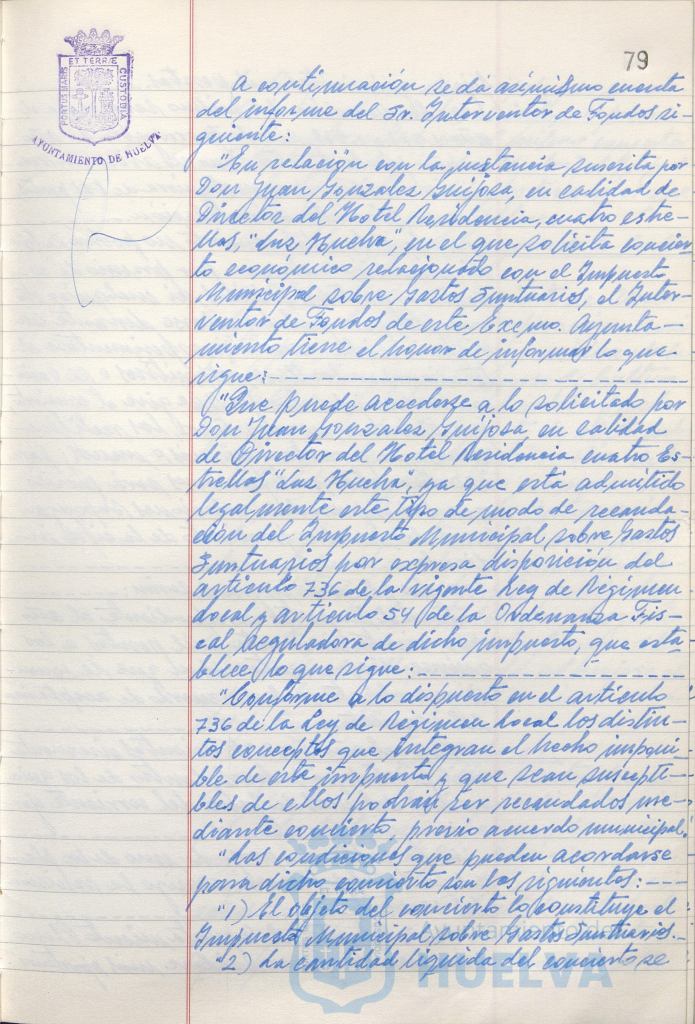 79
PORTUS MARIS ET TERRÆ CUSTODIA
AYUNTAMIENTO DE HUELVA
A continuación se da asimismo cuenta
del informe del Sr. Interventor de Fondos si-
guiente:
"En relación con la instancia suscrita por
Don Juan Gonzalez Guijosa, en calidad de
Director del Hotel Residencia, cuatro estre-
llas, "Luz Huelva", en el que solicita concier-
to económico relacionado con el Impuesto
Municipal sobre Gastos Suntuarios, el Inter-
ventor de Fondos de este Excmo. Ayunta-
miento tiene el honor de informar lo que
sigue:
"Que puede accederse a lo solicitado por
Don Juan Gonzalez Guijosa en calidad
de Director del Hotel Residencia cuatro Es-
trellas "Luz Huelva", ya que está admitido
legalmente este tipo de modo de recauda-
ción del Impuesto Municipal sobre Gastos
Suntuarios por expresa disposición del
artículo 736 de la vigente Ley de Régimen
Local y artículo 54 de la Ordenanza Fis-
cal reguladora de dicho impuesto, que esta-
blece lo que sigue:
"Conforme a lo dispuesto en el artículo
736 de la Ley de Régimen Local los distin-
tos conceptos que integran el hecho imponi-
ble de este impuesto y que sean suscepti-
bles de ellos podrán ser recaudados me-
diante concierto, previo acuerdo municipal.
"Las condiciones que pueden acordarse
para dicho concierto son las siguientes:
"1) El objeto del concierto lo constituye el
Impuesto Municipal sobre Gastos Suntuarios.
"2) La cantidad líquida del concierto se
Ayuntamiento de
HUELVA